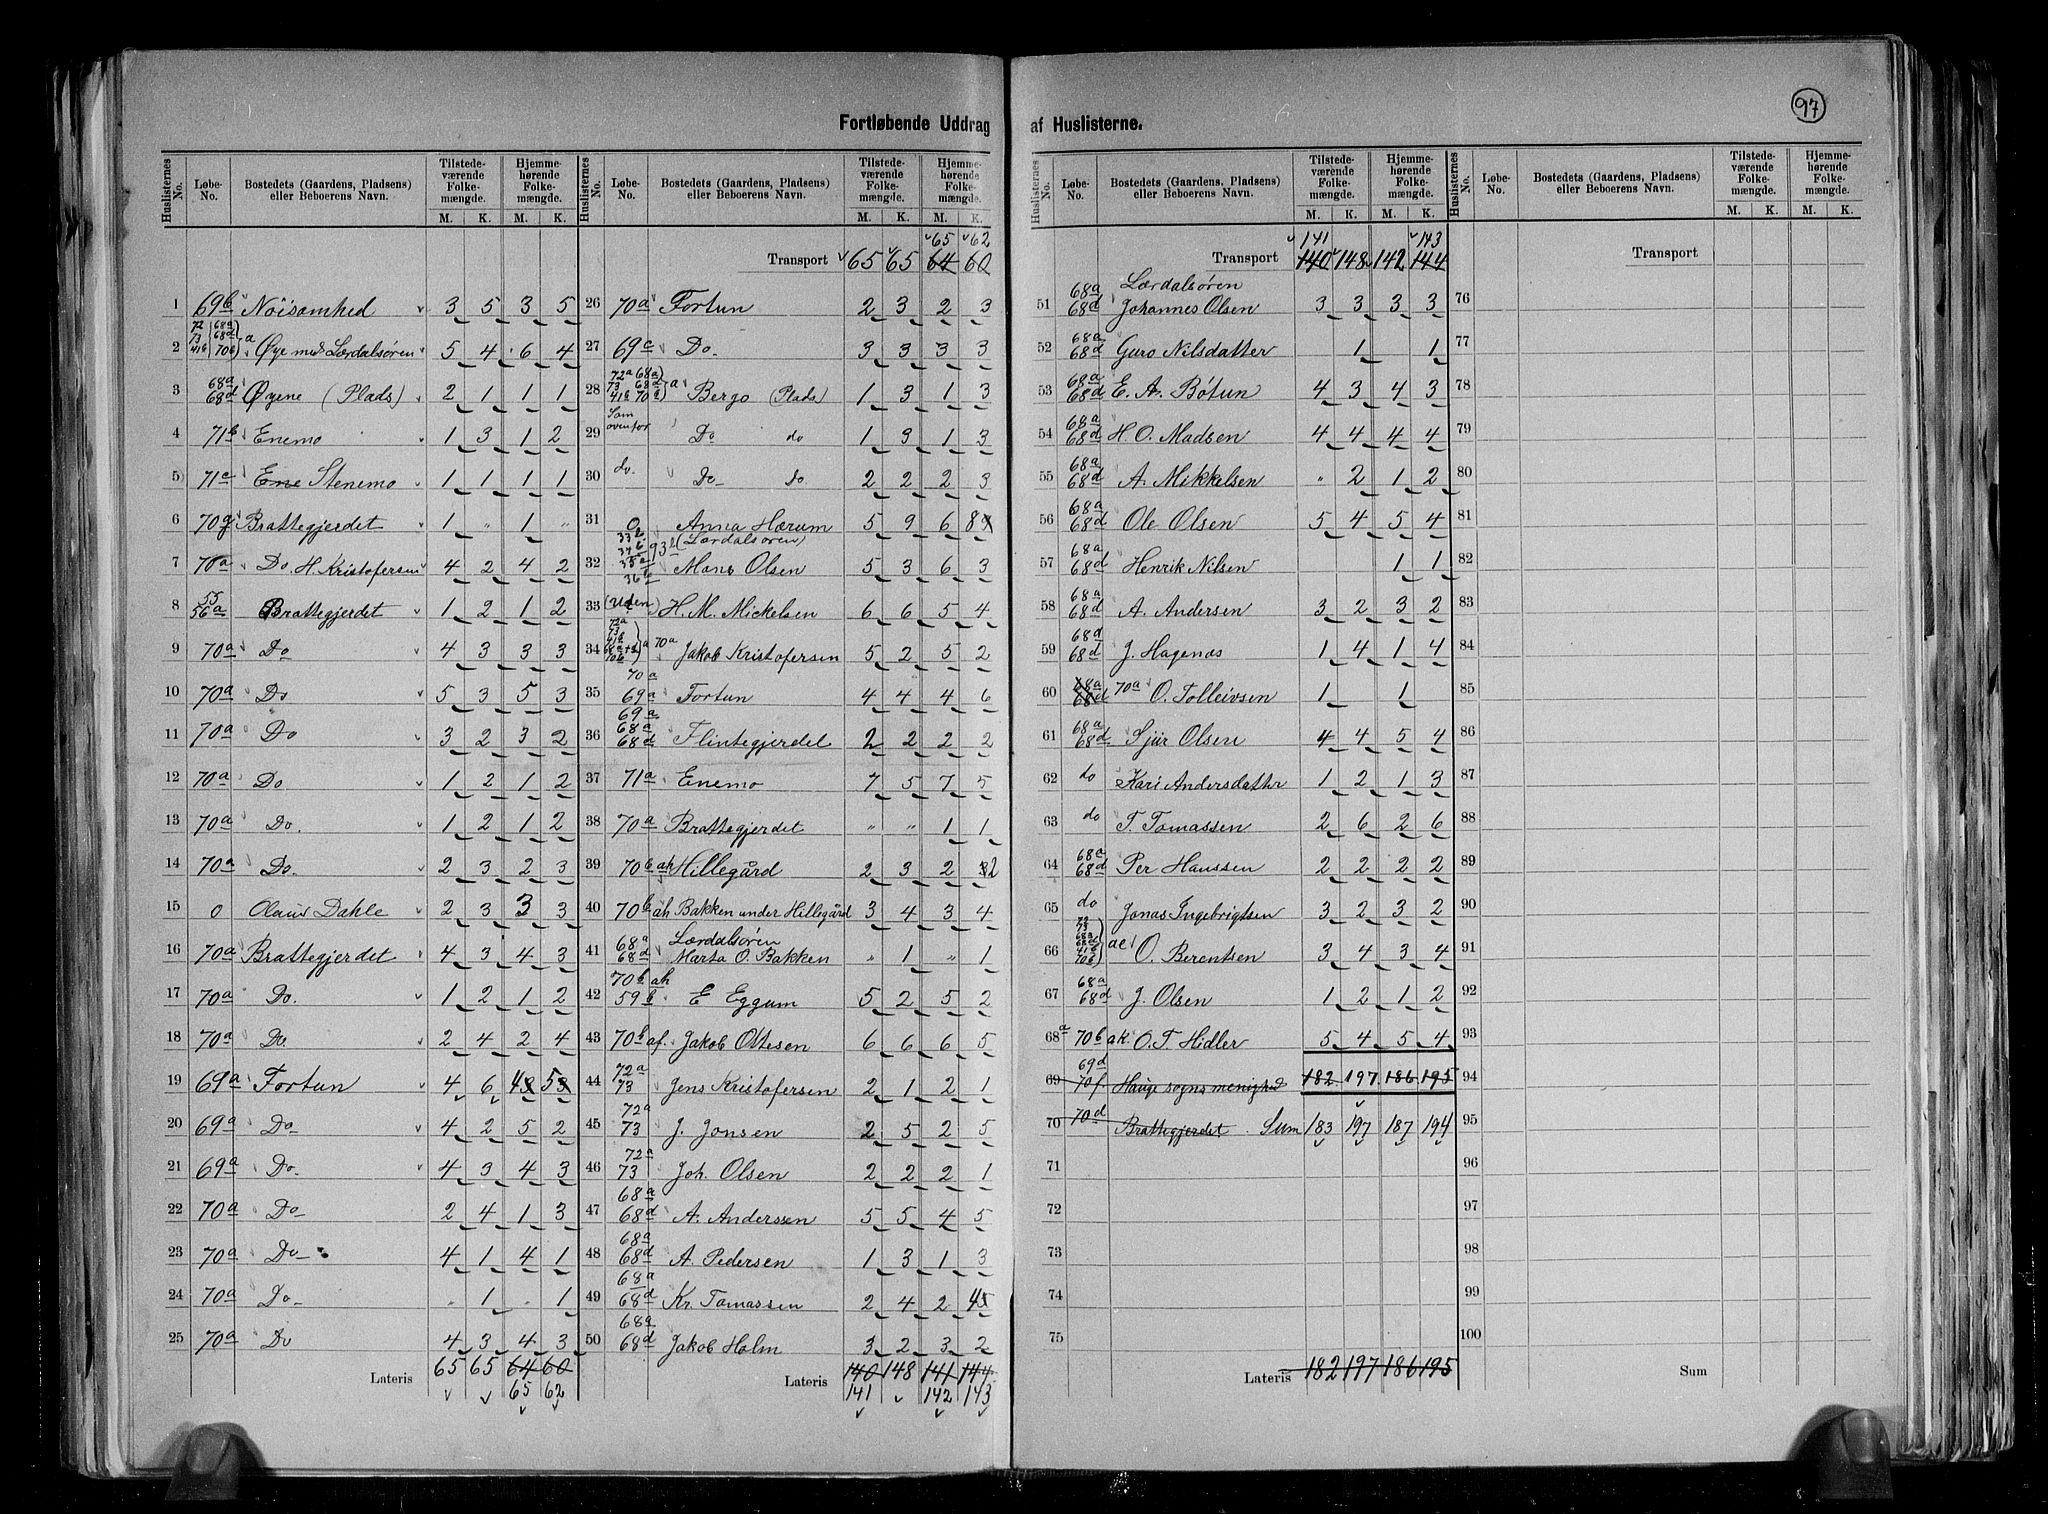 97
Fortløbende Uddrag af Huslisterne.
Huslisternes No. | Løbe-No. | Bostedets (Gaardens, Pladsens) eller Beboerens Navn. | Tilstede-værende Folke-mængde. M. K. | Hjemme-hørende Folke-mængde. M. K.
1 69b Nöisomhed 3 5 3 5
2 72 73 41b 68a 68d 70b a Øye med Lærdalsören 5 4 6 4
3 68a 68d Øyene (Plads) 2 1 1 1
4 71b Enemo 1 3 1 2
5 71c Ene Stenemo 1 1 1 1
6 70g Brattegjerdet 1 " 1 "
7 70a Do. H. Kristofersen 4 2 4 2
8 55 56a Brattegjerdet 1 2 1 2
9 70a Do 4 3 3 3
10 70a Do 5 3 5 3
11 70a Do 3 2 3 2
12 70a Do 1 2 1 2
13 70a Do. 1 2 1 2
14 70a Do. 2 3 2 3
15 0 Olaus Dahle 2 3 3 3
16 70a Brattegjerdet 4 3 4 3
17 70a Do. 1 2 1 2
18 70a Do. 2 4 2 4
19 69a Fortun 4 6 4 5
20 69a Do- 4 2 5 2
21 69a Do- 4 3 4 3
22 70a Do- 2 4 1 3
23 70a Do- 4 1 4 1
24 70a Do- " 1 " 1
25 70a Do 4 3 4 3
Lateris 65 65 64 60
65 62
Huslisternes No. | Løbe-No. | Bostedets (Gaardens, Pladsens) eller Beboerens Navn. | Tilstede-værende Folke-mængde. M. K. | Hjemme-hørende Folke-mængde. M. K.
65 62
Transport 65 65 64 60
26 70a Fortun 2 3 2 3
27 69c Do- 3 3 3 3
28 72a 68a 73 68d 41b 70b a Bergo (Plads) 1 3 1 3
29 Som ovenfor Do do 1 3 1 3
30 do. Do- do 2 2 2 3
31 0 Anna Hærum 5 9 6 8
(Lærdalsören)
32 35a 36b 93b Mons Olsen 5 3 6 3
33 (Uden) H. M. Mickelsen 6 6 5 4
34 72a 73 41b 70b a 70a Jakob Kristofersen 5 2 5 2
35 70a 69a Fortun 4 4 4 6
36 69a 68a 68d Flintegjerdet 2 2 2 2
37 71a Enemo 7 5 7 5
38 70a Brattegjerdet " " 1 1
39 70b ah Hillegård 2 3 2 2
40 70b ah Bakken under Hillegård 3 4 3 4
41 68a 68d Lærdalsören Marta O. Bakken " 1 " 1
42 70b ah 59b E Eggum 5 2 5 2
43 70b af. Jakob Ottesen 6 6 6 5
44 72a 73 Jens Kristofersen 2 1 2 1
45 72a 73 J. Jonsen 2 5 2 5
46 72a 73 Joh. Olsen 2 2 2 1
47 68a 68d A. Anderssen 5 5 4 5
48 68a 68d A Pedersen 1 3 1 3
49 68a 68d Kr. Tomassen 2 4 2 4
50 68a 68d Jakob Holm 3 2 3 2
Lateris 140 148 141 144
141 142 143
Huslisternes No. | Løbe-No. | Bostedets (Gaardens, Pladsens) eller Beboerens Navn. | Tilstede-værende Folke-mængde. M. K. | Hjemme-hørende Folke-mængde. M. K.
141 143
Transport 140 148 142 144
51 68a 68d Lærdalsören Johannes Olsen 3 3 3 3
52 68a 68d Guro Nilsdatter 1 1
53 68a 68d E. A. Bötun 4 3 4 3
54 68a 68d H. O. Madsen 4 4 4 4
55 68a 68d A. Mikkelsen " 2 1 2
56 68a 68d Ole Olsen 5 4 5 4
57 68a 68d Henrik Nilsen 1 1
58 68a 68d A. Andersen 3 2 3 2
59 68d 68d J. Hagenæs 1 4 1 4
60 68a 68d 70a O. Tolleivsen 1 1
61 68a 68d Sjur Olsen 4 4 5 4
62 do Kari Andersdatter 1 2 1 3
63 do T. Tomassen 2 6 2 6
64 68a 68d Per Hanssen 2 2 2 2
65 do Jonas Ingebrigtsen 3 2 3 2
66 72 73 68a 68d 41b 70b ae O. Berentsen 3 4 3 4
67 68a 68d J. Olsen 1 2 1 2
68a 70b ak. O. T. Hidler 5 4 5 4
69 69d 70f Hauge sogns menighed 182 197 186 195
70 70d Brattegjerdet. Sum 183 197 187 194
71
72
73
74
75
Lateris 182 197 186 195
Huslisternes No. | Løbe-No. | Bostedets (Gaardens, Pladsens) eller Beboerens Navn. | Tilstede-værende Folke-mængde. M. K. | Hjemme-hørende Folke-mængde. M. K.
Transport
76
77
78
79
80
81
82
83
84
85
86
87
88
89
90
91
92
93
94
95
96
97
98
99
100
Sum